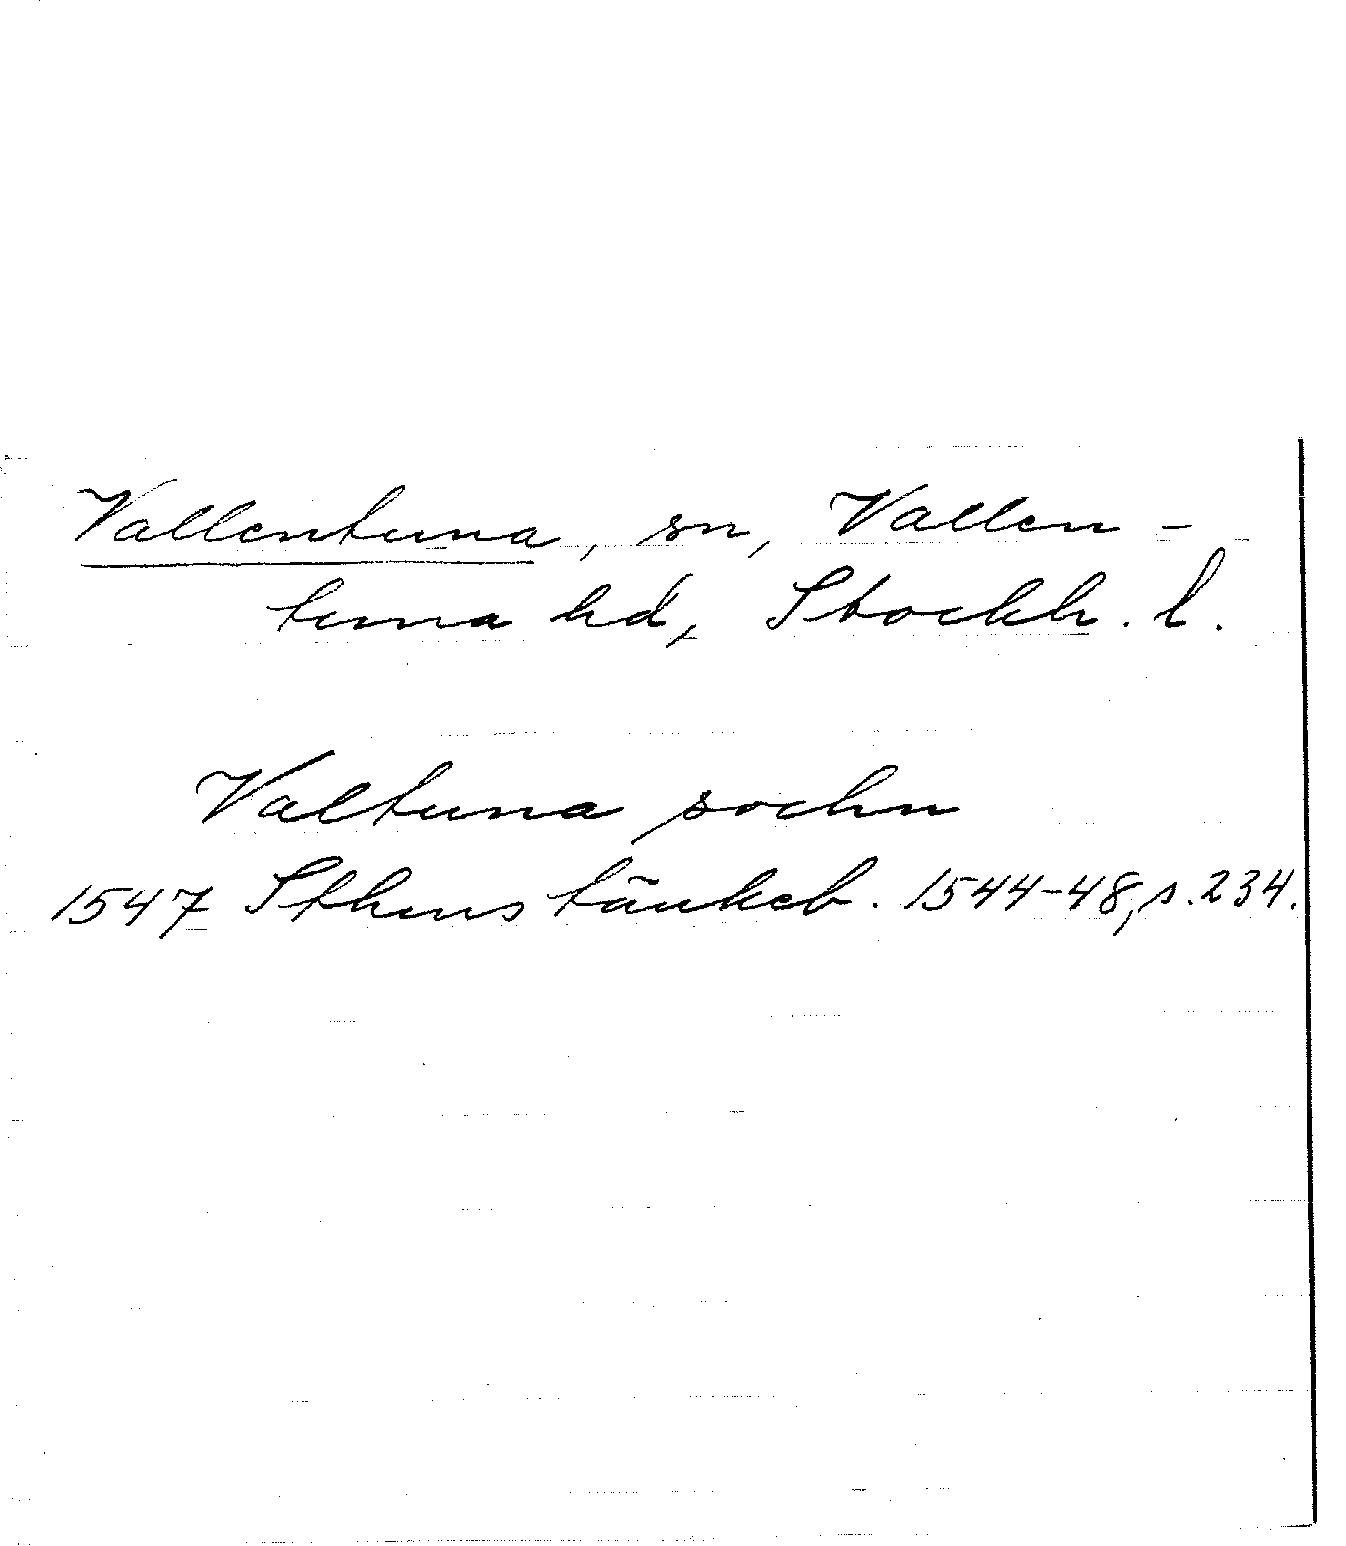 Vallentuna, sn, Vallen-
tuna hd, Stockh. l.
Valtuna sochn
1547 Sthms tänkeb. 1544-48, s. 234.